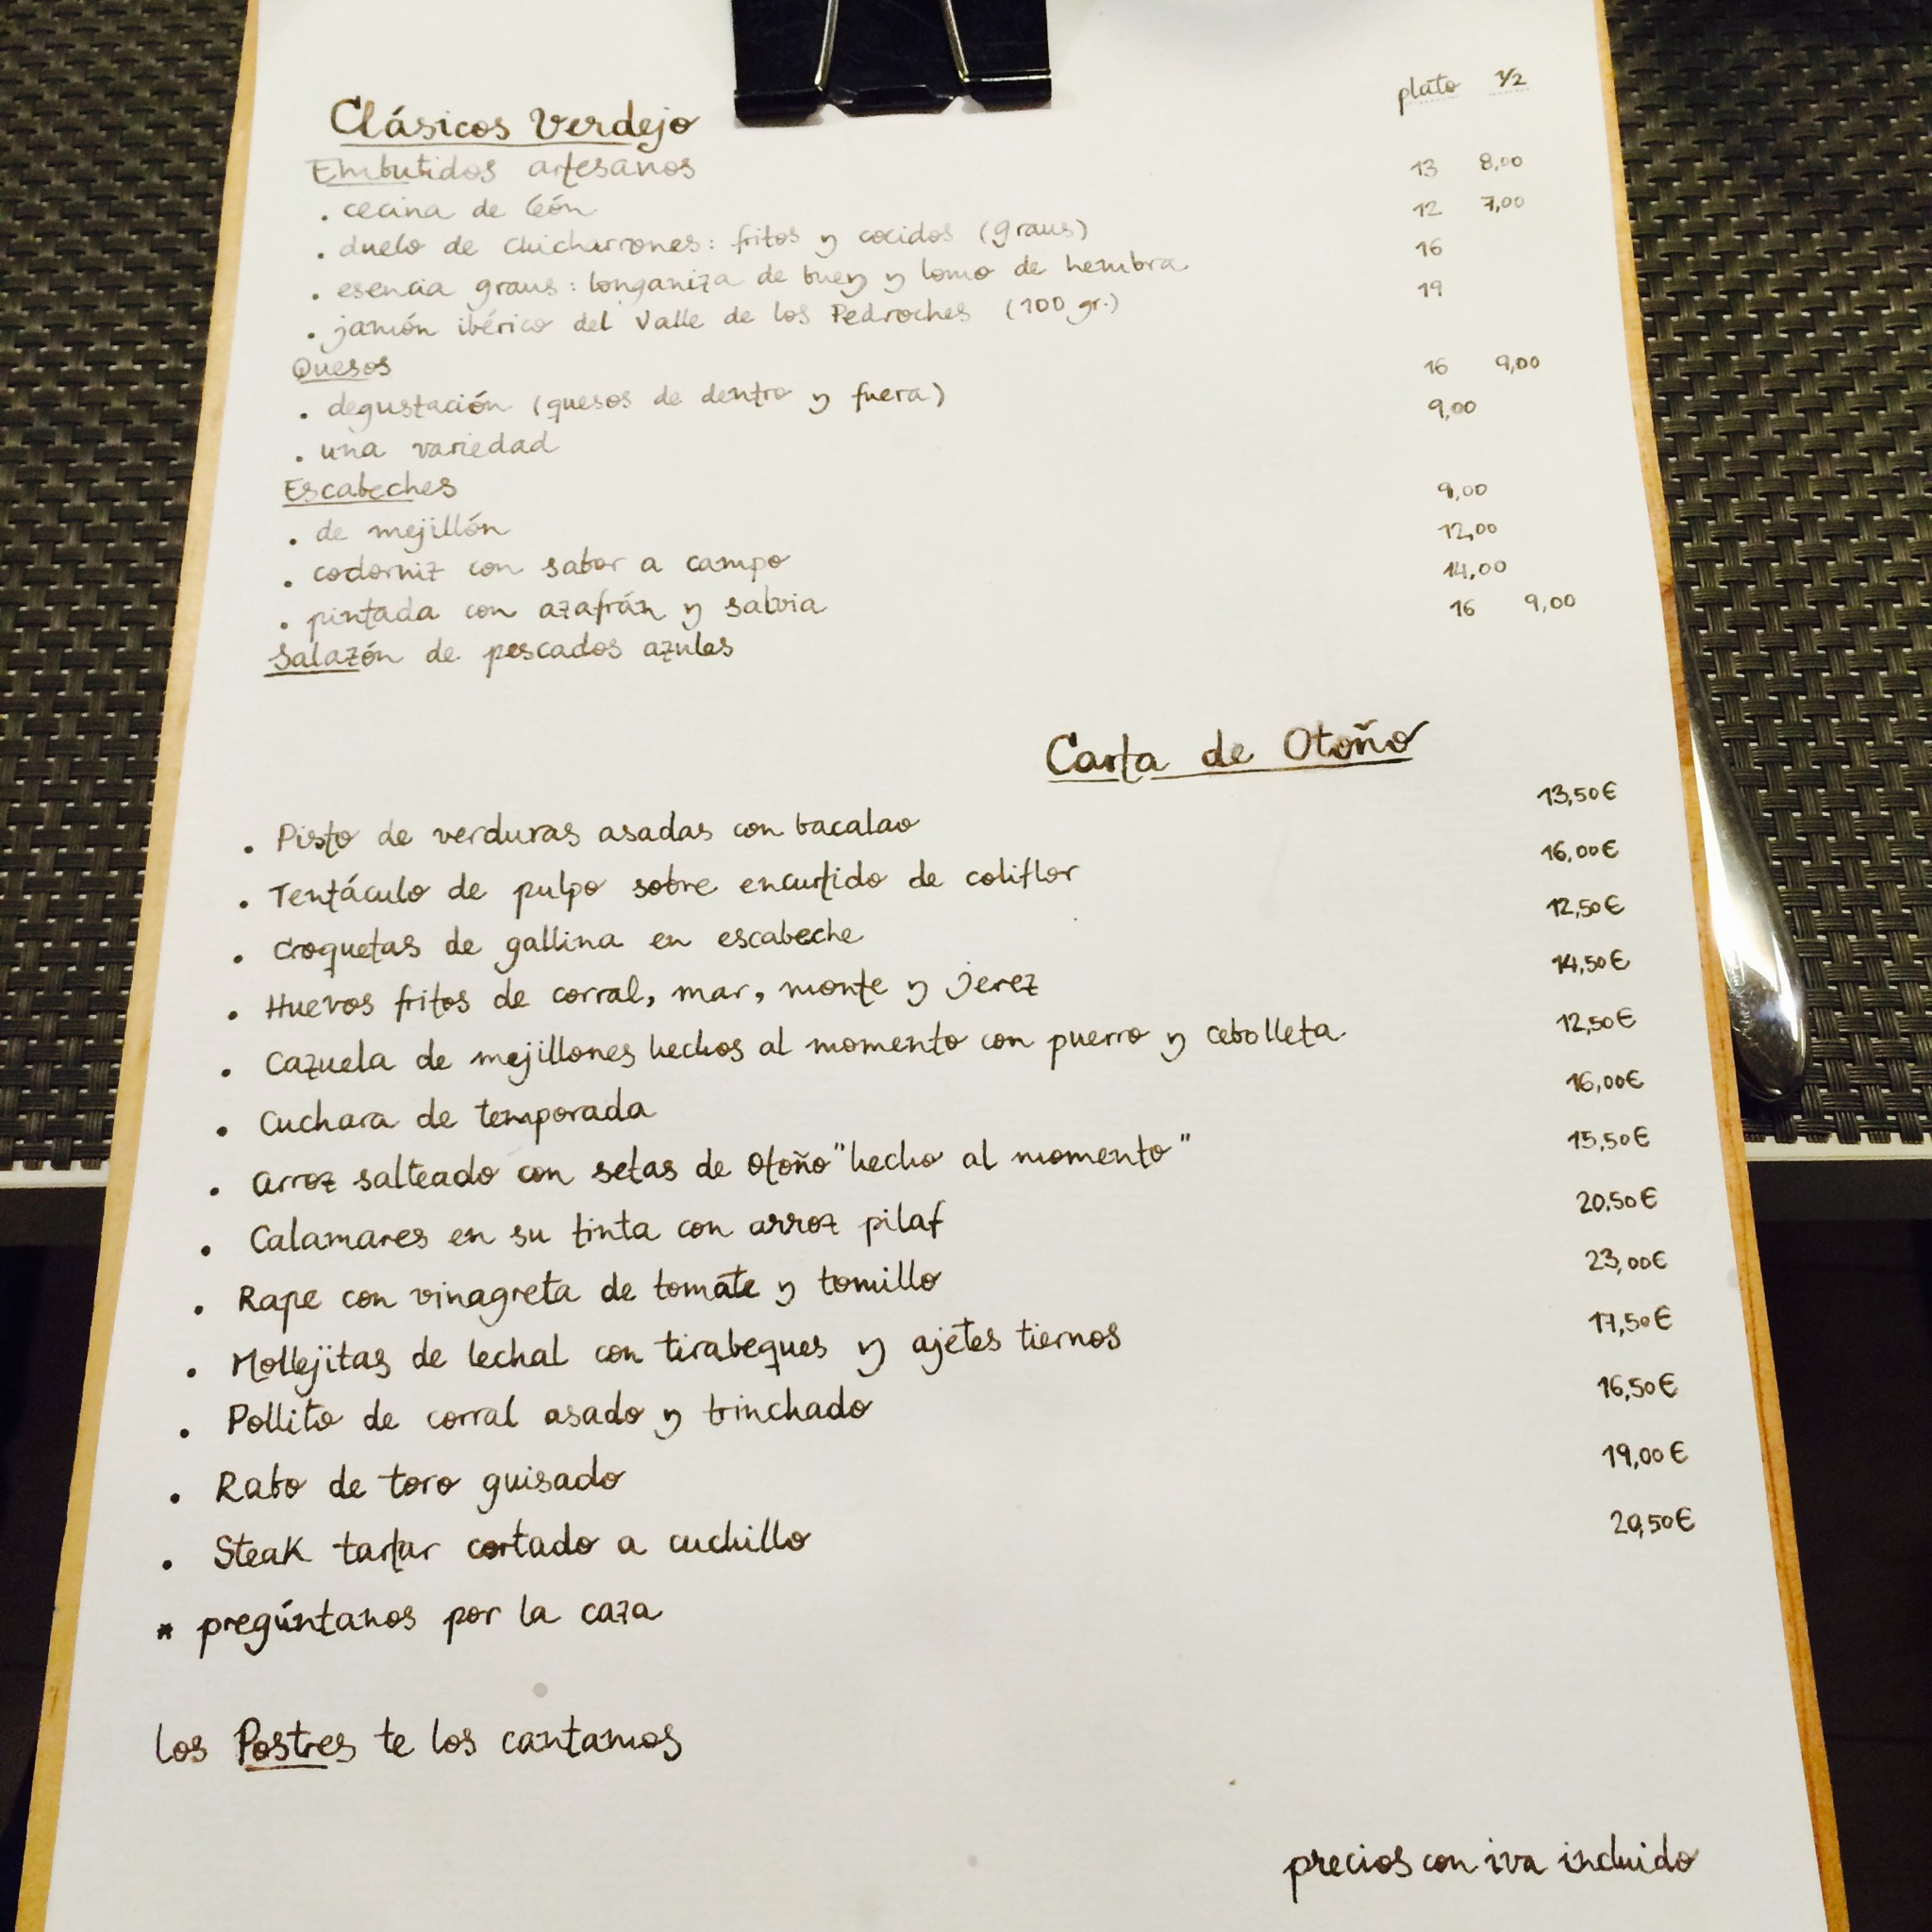 plato 1/2
Clásicos Verdejo
Embutidos artesanos
. cecina de león 13 8,00
. duelo de chicharrones: fritos y cocidos (graus) 12 7,00
. esencia graus: longaniza de buey y lomo de hembra 16
. jamón ibérico del Valle de los Pedroches (100 gr.) 19
Quesos
. degustación (quesos de dentro y fuera) 16 9,00
. una variedad 9,00
Escabeches
. de mejillón 9,00
. codorniz con sabor a campo 12,00
. pintada con azafrán y salvia 14,00
Salazón de pescados azules 16 9,00
Carta de Otoño
. Pisto de verduras asadas con bacalao 13,50€
. Tentáculo de pulpo sobre encurtido de coliflor 16,00€
. Croquetas de gallina en escabeche 12,50€
. Huevos fritos de corral, mar, monte y Jerez 14,50€
. Cazuela de mejillones hechos al momento con puerro y cebolleta 12,50€
. Cuchara de temporada 16,00€
. Arroz salteado con setas de Otoño "hecho al momento" 15,50€
. Calamares en su tinta con arroz pilaf 20,50€
. Rape con vinagreta de tomate y tomillo 23,00€
. Mollejitas de lechal con tirabeques y ajetes tiernos 17,50€
. Pollito de corral asado y trinchado 16,50€
. Rabo de toro guisado 19,00€
. Steak tartar cortado a cuchillo 20,50€
* pregúntanos por la caza
los Postres te los cantamos
precios con iva incluido